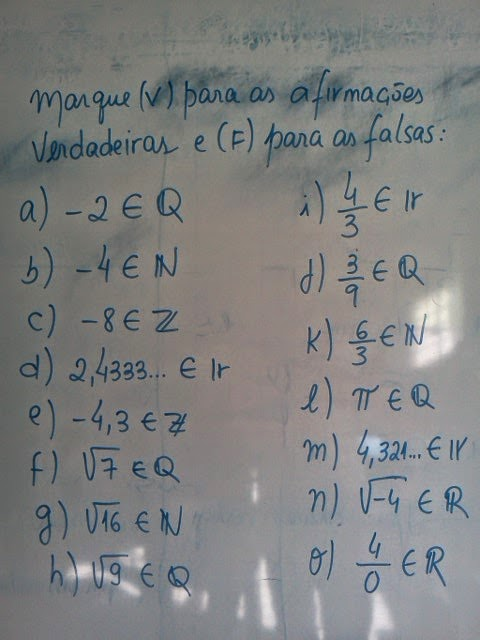 Marque (V) para as afirmações
Verdadeiras e (F) para as falsas:
a) -2 ∈ ℚ
b) -4 ∈ ℕ
c) -8 ∈ ℤ
d) 2,4333... ∈ Ir
e) -4,3 ∈ ℤ
f) √7 ∈ ℚ
g) √16 ∈ ℕ
h) √9 ∈ ℚ
i) 4/3 ∈ Ir
j) 3/9 ∈ ℚ
k) 6/3 ∈ ℕ
l) π ∈ ℚ
m) 4,321... ∈ Ir
n) √-4 ∈ ℝ
o) 4/0 ∈ ℝ